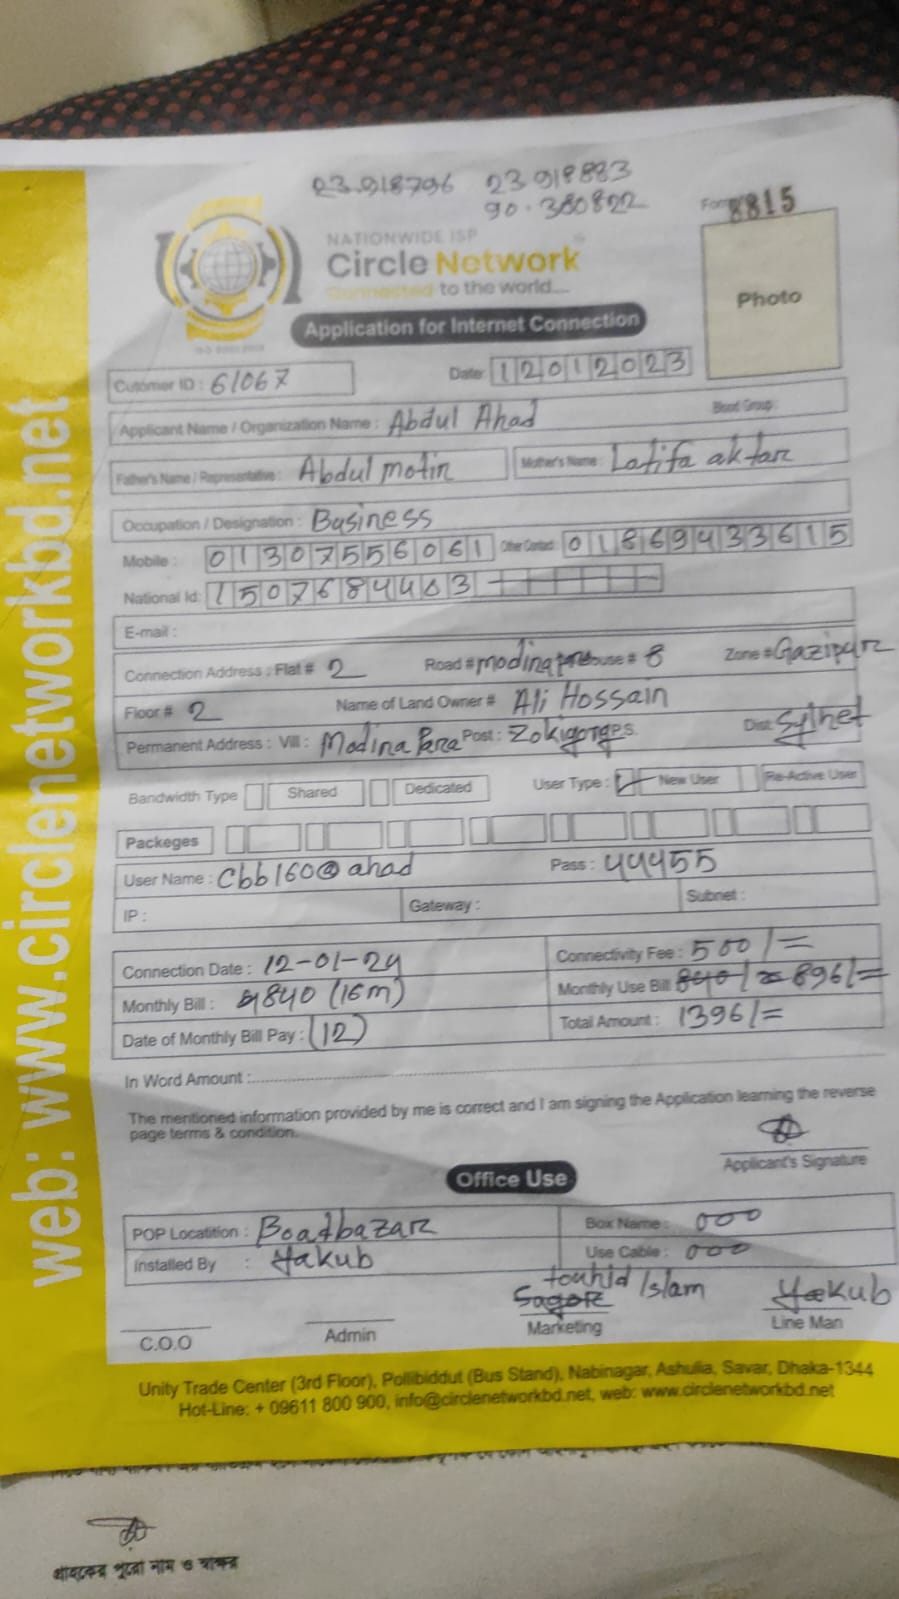 23.918796 23.918883
90.380822
Form 8815
NATIONWIDE ISP
Circle Network
Connected to the world....
Photo
Application for Internet Connection
Cutomer ID : 61067
Date: 12012023
Applicant Name / Organization Name : Abdul Ahad Blood Group :
Father's Name / Representative : Abdul motin Mother's Name : Latifa aktar
Occupation / Designation : Business
Mobile : 01307556061 Other Contact : 01869433615
National Id: 1507684463
E-mail :
Connection Address : Flat # 2 Road # modina para House # 8 Zone # Gazipur
Floor # 2 Name of Land Owner # Ali Hossain
Permanent Address : Vill : Modina Para Post : Zokigorge P.S. Dist: Sylhet
Bandwidth Type Shared Dedicated User Type : New User Re-Active User
Packeges
User Name : Cbb160@ahad Pass : 44455
IP : Gateway : Subnet :
Connection Date : 12-01-24 Connectivity Fee : 500/=
Monthly Bill : 840 (16m) Monthly Use Bill 840/= 896/=
Date of Monthly Bill Pay : (12) Total Amount : 1396/=
In Word Amount :
The mentioned information provided by me is correct and I am signing the Application learning the reverse
page terms & condition.
Applicant's Signature
Office Use
POP Locatition : Boadbazar Box Name : 000
Installed By : Yakub Use Cable : 000
touhid Islam
Sagor Yakub
C.O.O Admin Marketing Line Man
Unity Trade Center (3rd Floor), Pollibiddut (Bus Stand), Nabinagar, Ashulia, Savar, Dhaka-1344
Hot-Line: + 09611 800 900, info@circlenetworkbd.net, web: www.circlenetworkbd.net
web: www.circlenetworkbd.net